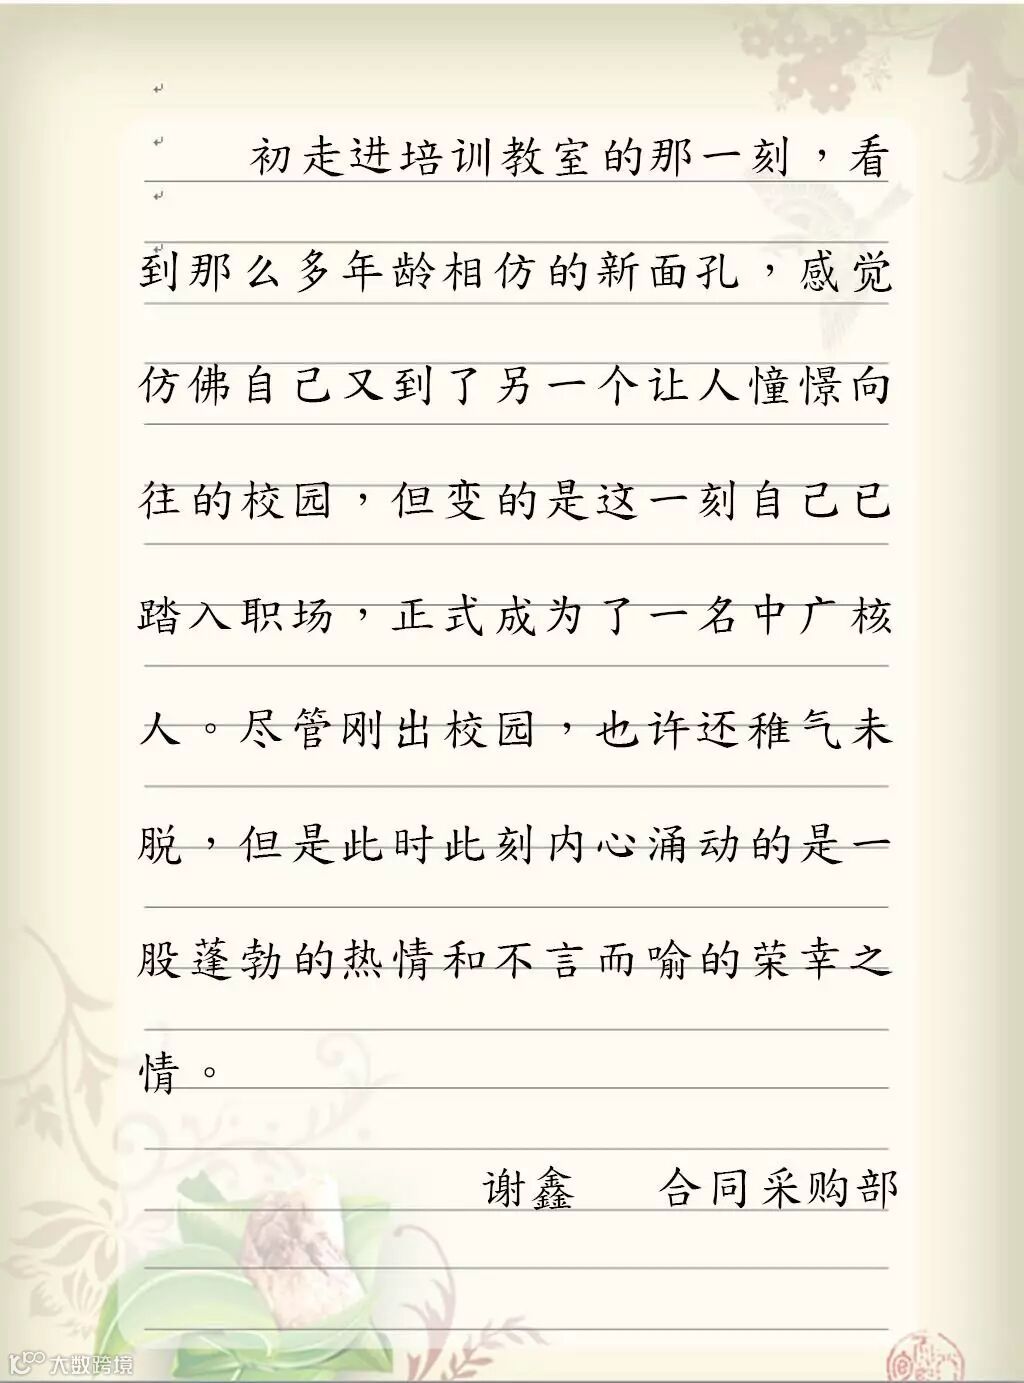 初走进培训教室的那一刻，看
到那么多年龄相仿的新面孔，感觉
仿佛自己又到了另一个让人憧憬向
往的校园，但变的是这一刻自己已
踏入职场，正式成为了一名中广核
人。尽管刚出校园，也许还稚气未
脱，但是此时此刻内心涌动的是一
股蓬勃的热情和不言而喻的荣幸之
情。
谢鑫 合同采购部
大数跨境